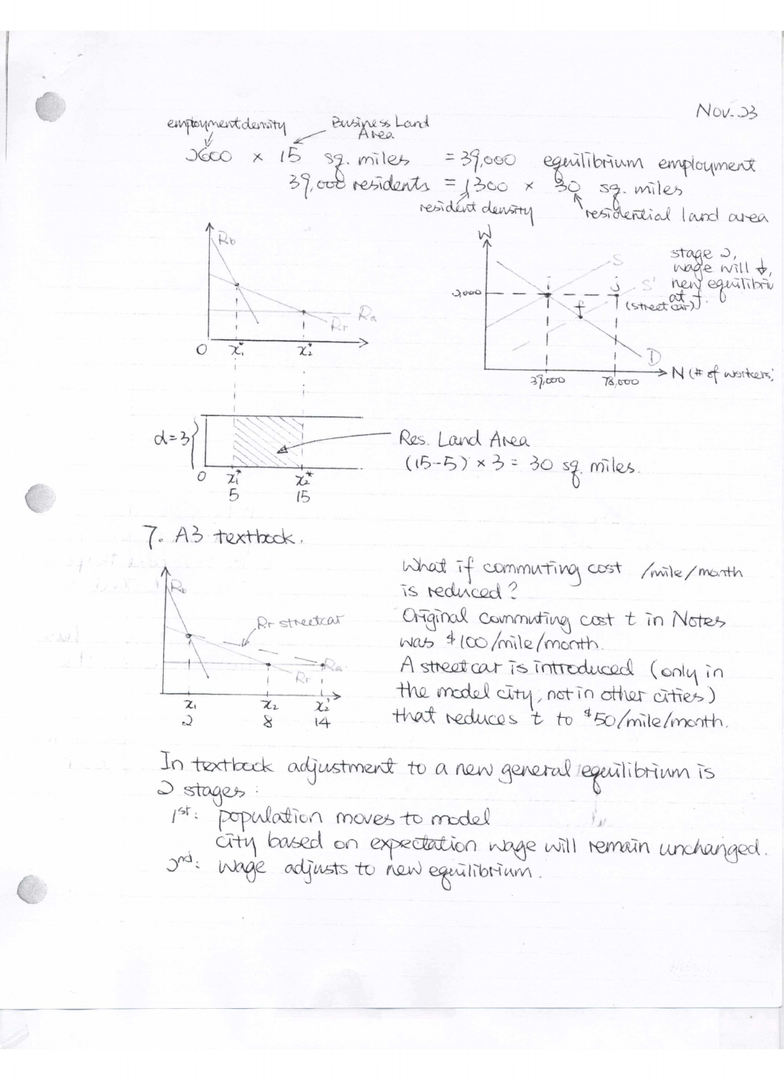 Nov. 23
employment density
Business Land Area
2600 × 15 sq. miles = 39,000 equilibrium employment
39,000 residents = 1300 × 30 sq. miles
resident density
residential land area
Rb
Rr
Ra
0 x₁* x₂*
W
S
S'
stage 2,
wage will ↓,
new equilibri
at f.
2,000
i
j
(streetcar)
f
D
39,000 78,000
N (# of workers)
d=3
0 x₁* x₂*
5 15
Res. Land Area
(15-5) × 3 = 30 sq. miles.
7. A3 textbook.
Rb
Rr streetcar
Ra
Rr
x₁ x₂ x₂'
2 8 14
What if commuting cost /mile/month
is reduced?
Original commuting cost t in Notes
was $100/mile/month.
A streetcar is introduced (only in
the model city, not in other cities)
that reduces t to $50/mile/month.
In textbook adjustment to a new general equilibrium is
2 stages:
1st: population moves to model
city based on expectation wage will remain unchanged.
2nd: wage adjusts to new equilibrium.